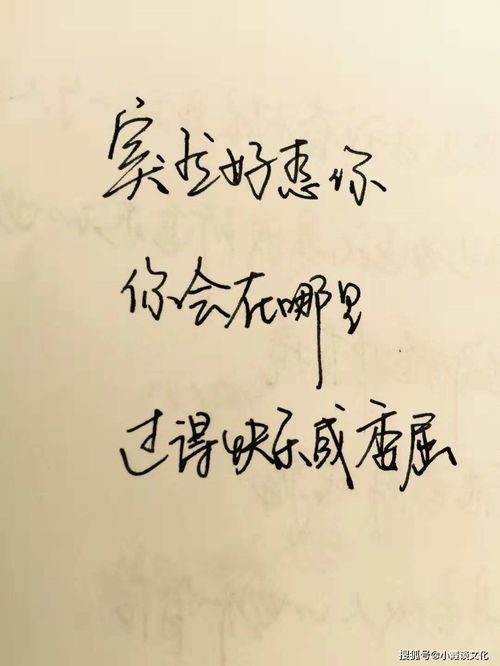 突然好想你
你会在哪里
过得快乐或委屈
搜狐号@小霞谈文化